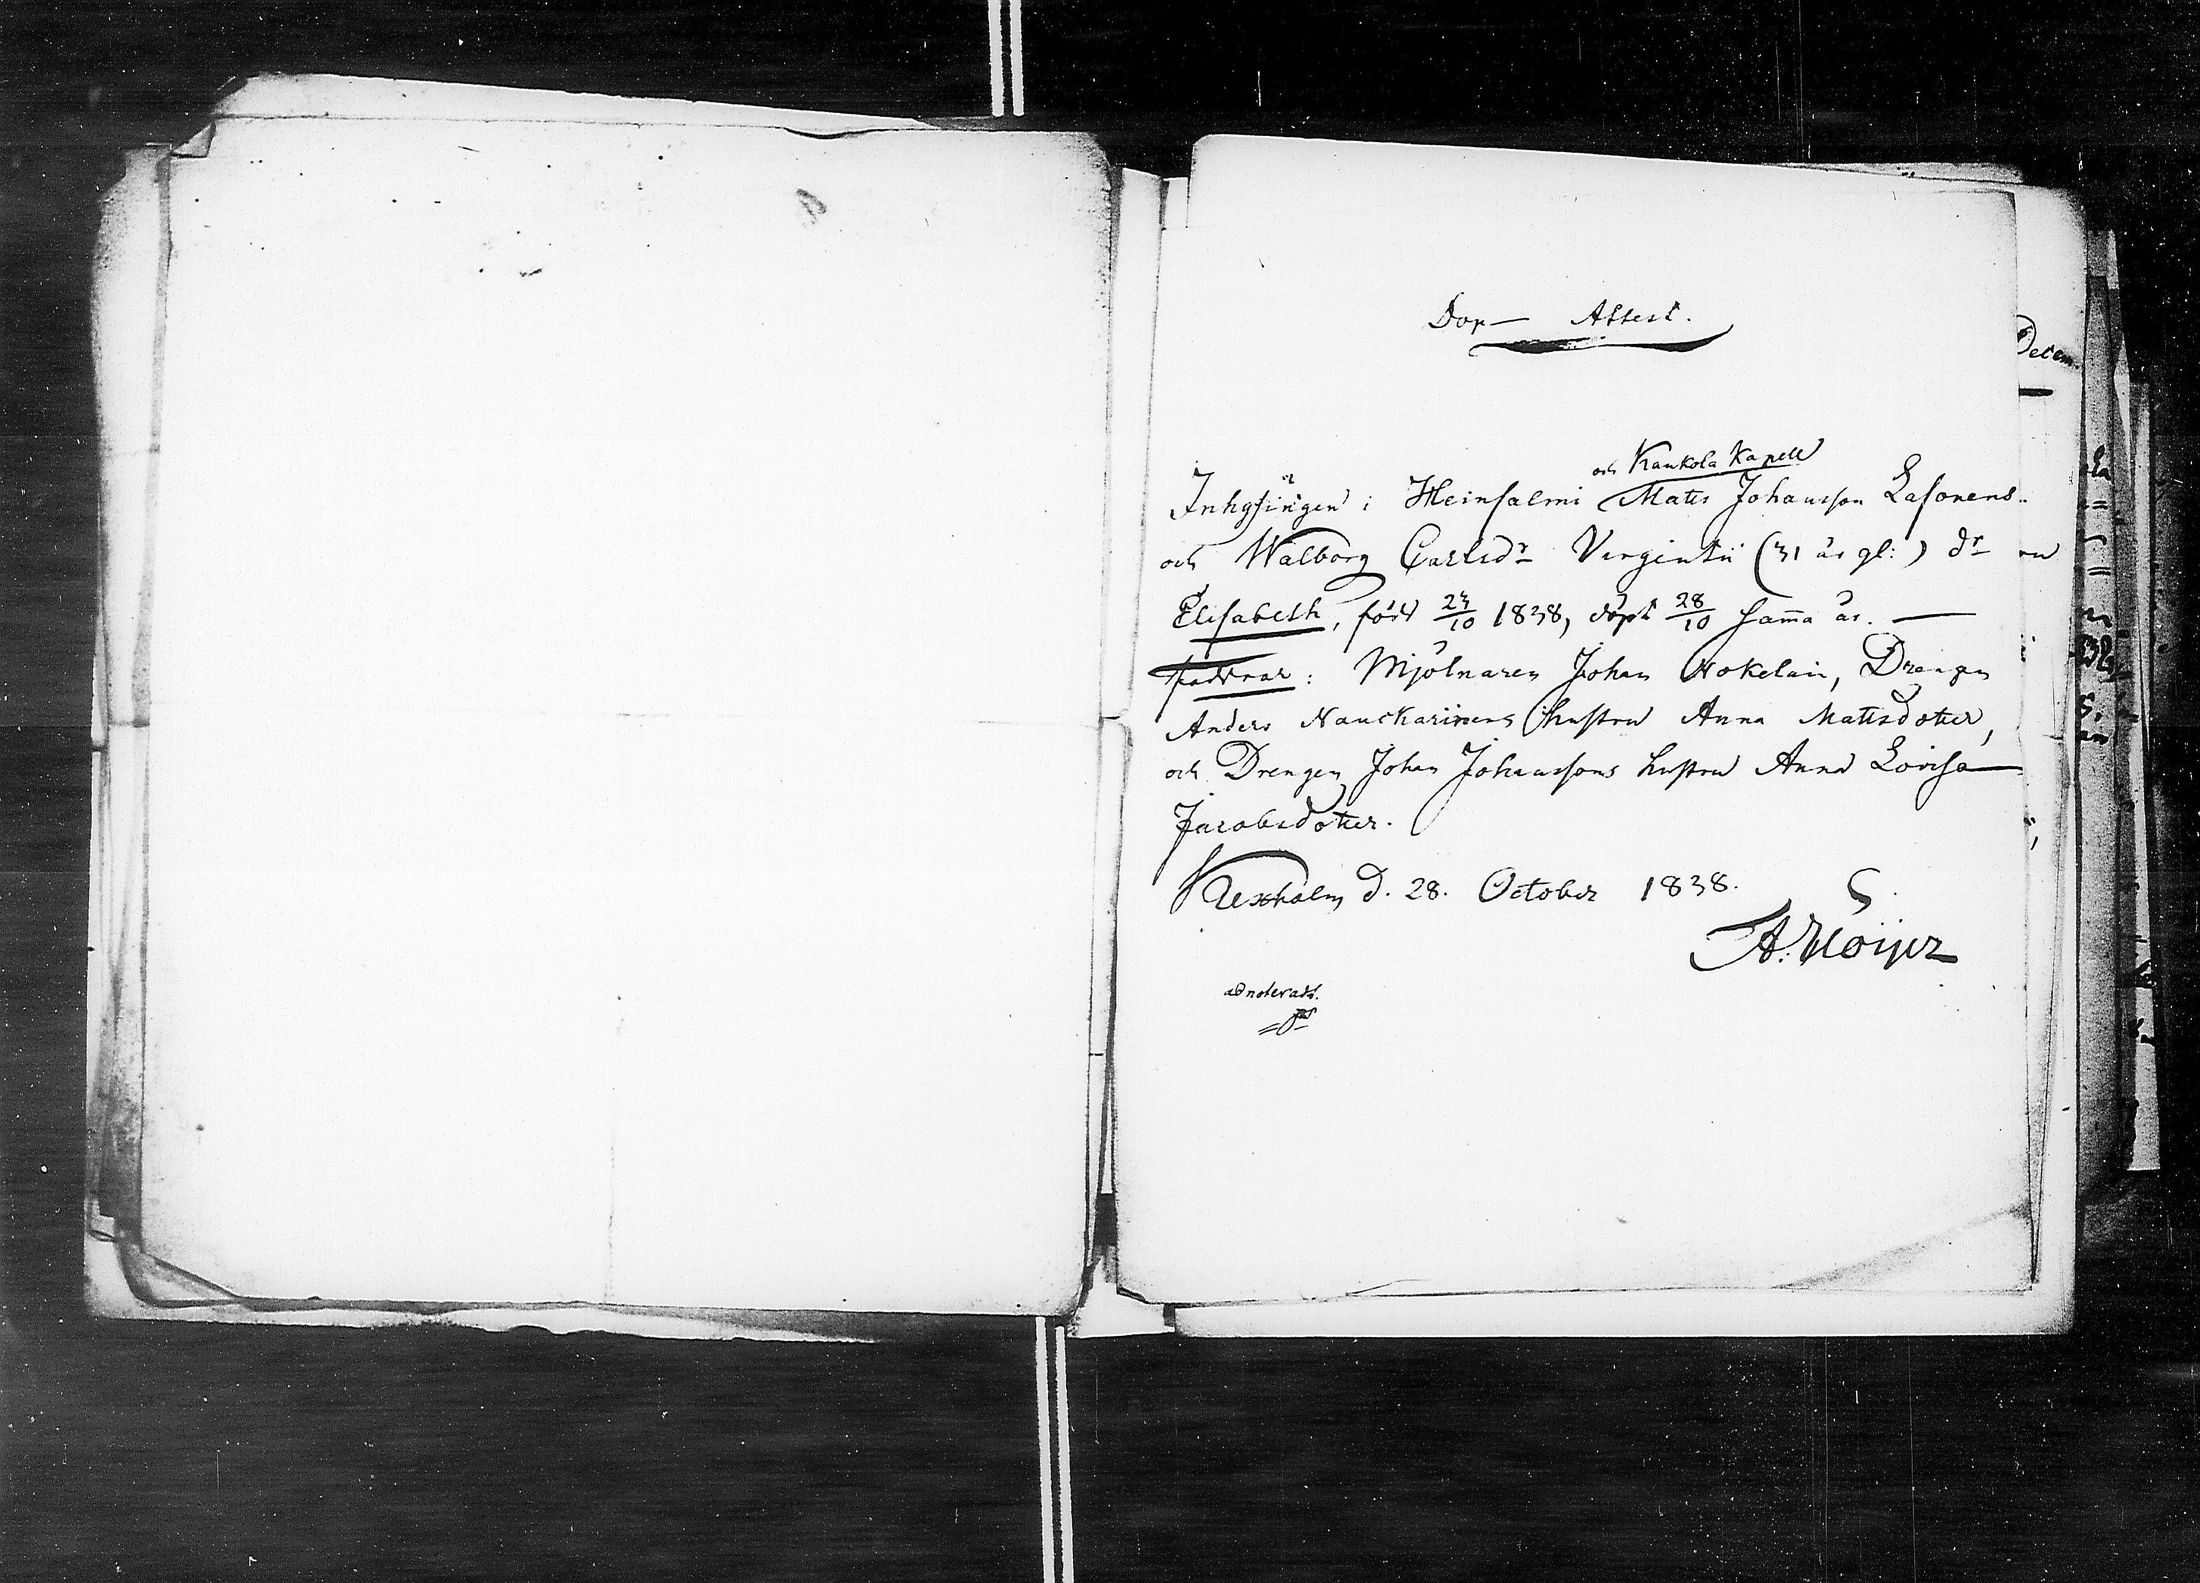 Dop– Attest.
och Kaukola Kapell
Inhysingen i Heinsalmi Matts Johansson Lasonens
och Walborg Carlsdr Vergintii (31 år gl:) dr
Elisabeth, född 23/10 1838, döpt 28/10 samma år. —
faddrar: Mjölnaren Johan Nokelain, Drengen
Anders Nauckarinens hustru Anna Mattsdotter,
och Drengen Johan Johanssons hustru Anna Lovisa
Jacobsdotter.
Kexholm d. 28. October 1838.
A. Höijer
adnoteradt.
Decem